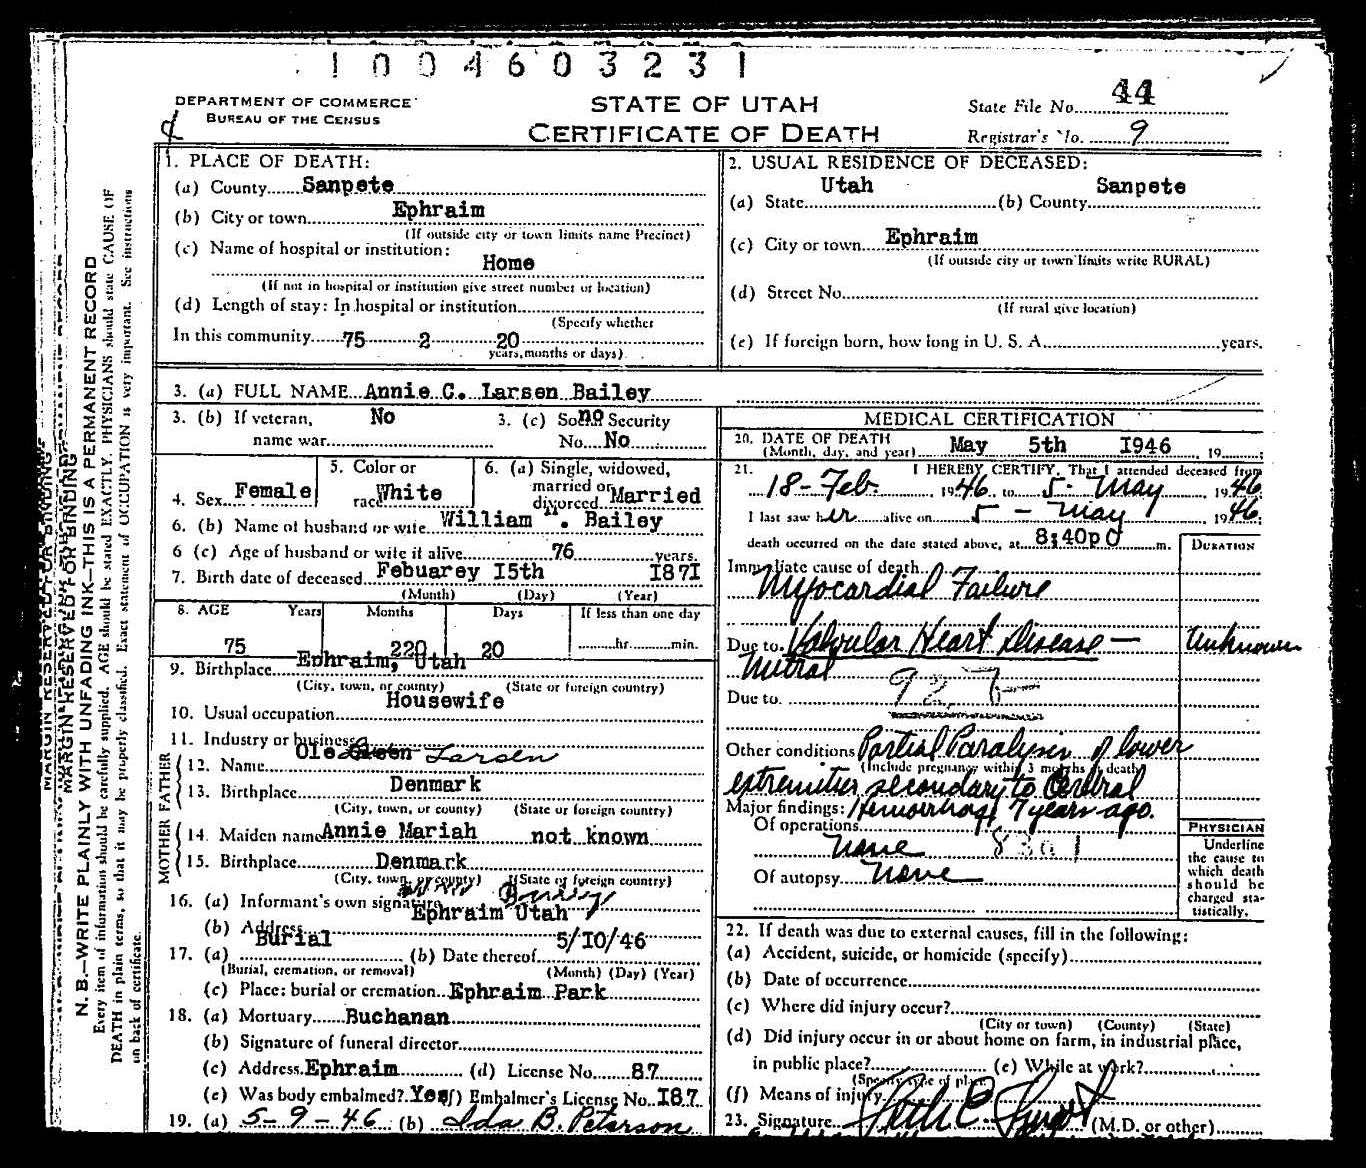 1004603231
DEPARTMENT OF COMMERCE
BUREAU OF THE CENSUS
STATE OF UTAH
CERTIFICATE OF DEATH
State File No. 44
Registrar's No. 9
1. PLACE OF DEATH:
(a) County Sanpete
(b) City or town Ephraim
(If outside city or town limits name Precinct)
(c) Name of hospital or institution:
Home
(If not in hospital or institution give street number or location)
(d) Length of stay: In hospital or institution
(Specify whether
In this community 75 2 20
years, months or days)
2. USUAL RESIDENCE OF DECEASED:
Utah Sanpete
(a) State (b) County
(c) City or town Ephraim
(If outside city or town limits write RURAL)
(d) Street No.
(If rural give location)
(e) If foreign born, how long in U. S. A. years.
3. (a) FULL NAME Annie C. Larsen Bailey
3. (b) If veteran, No
name war
3. (c) Social Security no
No. No
4. Sex Female
5. Color or
race White
6. (a) Single, widowed,
married or
divorced Married
6. (b) Name of husband or wife William . Bailey
6 (c) Age of husband or wife if alive 76 years.
7. Birth date of deceased Febuarey I5th I87I
(Month) (Day) (Year)
8. AGE Years Months Days If less than one day
75 220 20 hr. min.
9. Birthplace Ephraim, Utah
(City, town, or county) (State or foreign country)
Housewife
10. Usual occupation
11. Industry or business
FATHER
12. Name Ole Larsen
13. Birthplace Denmark
(City, town, or county) (State or foreign country)
MOTHER
14. Maiden name Annie Mariah not known
15. Birthplace Denmark
(City, town, or county) (State or foreign country)
16. (a) Informant's own signature
(b) Address Ephraim Utah
17. (a) Burial (b) Date thereof 5/I0/46
(Burial, cremation, or removal) (Month) (Day) (Year)
(c) Place: burial or cremation Ephraim Park
18. (a) Mortuary Buchanan
(b) Signature of funeral director
(c) Address Ephraim (d) License No. 87
(e) Was body embalmed? Yes (f) Embalmer's License No. I87
19. (a) 5-9-46 (b) Ida B. Peterson
MEDICAL CERTIFICATION
20. DATE OF DEATH
(Month, day, and year) May 5th I946, 19
21. I HEREBY CERTIFY, That I attended deceased from
18-Feb. 1946 to 5-May, 1946
I last saw her alive on 5-May 1946
death occurred on the date stated above, at 8:40p m.
DURATION
Immediate cause of death
Myocardial Failure
Due to Valvular Heart Disease — Unknown
Mitral
Due to 92
Other conditions Partial Paralysis of lower
(Include pregnancy within 3 months of death)
extremities secondary to Cerebral
Major findings: Hemorrhage 7 years ago.
Of operations
None
Of autopsy None
PHYSICIAN
Underline
the cause to
which death
should be
charged sta-
tistically.
22. If death was due to external causes, fill in the following:
(a) Accident, suicide, or homicide (specify)
(b) Date of occurrence
(c) Where did injury occur?
(City or town) (County) (State)
(d) Did injury occur in or about home on farm, in industrial place,
in public place? (e) While at work?
(Specify type of place)
(f) Means of injury
23. Signature (M.D. or other)
MARGIN RESERVED FOR BINDING
N. B.—WRITE PLAINLY WITH UNFADING INK—THIS IS A PERMANENT RECORD
Every item of information should be carefully supplied. AGE should be stated EXACTLY. PHYSICIANS should state CAUSE OF
DEATH in plain terms, so that it may be properly classified. Exact statement of OCCUPATION is very important. See instructions
on back of certificate.